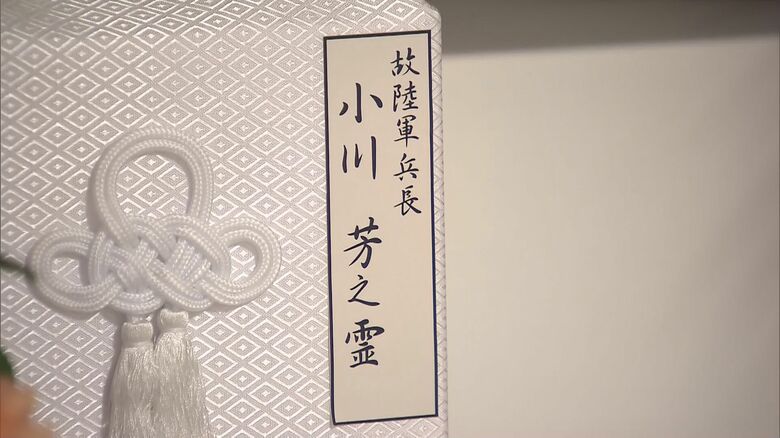 故陸軍兵長
小川 芳之霊